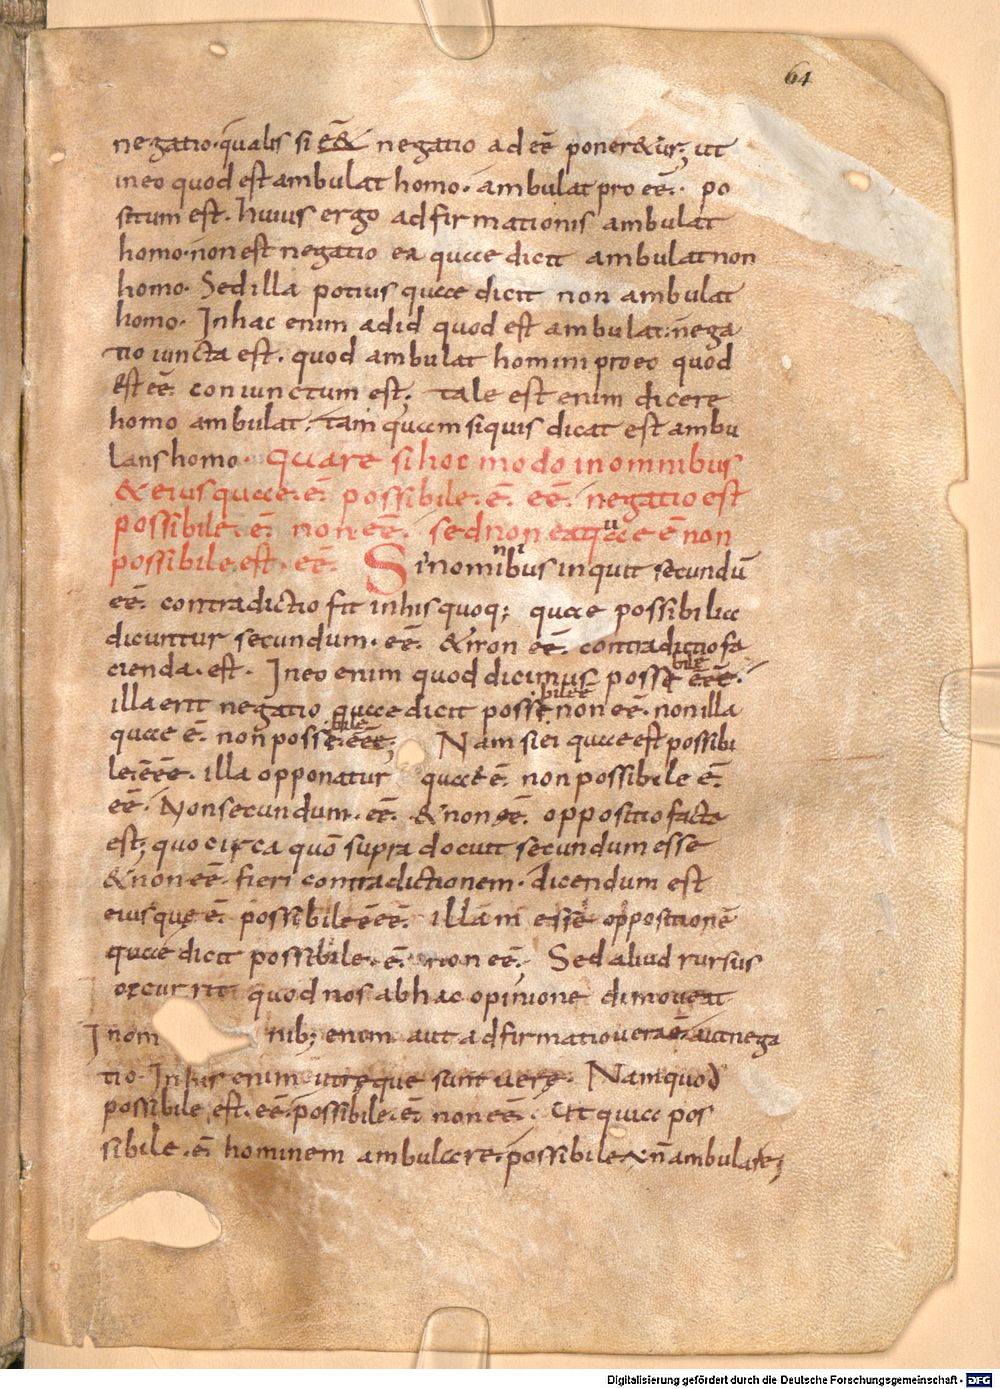 64
negatio. qualis si eē& negatio ad eē poner&ur; ut
in eo quod est ambulat homo. ambulat pro eē. po
situm est. huius ergo adfirmationis ambulat
homo. non est negatio ea quae dicit ambulat non
homo. Sed illa potius quae dicit non ambulat
homo. In hac enim ad id quod est ambulat. nega
tio iuncta est. quod ambulat homini pro eo quod
est eē. coniunctum est; tale est enim dicere
homo ambulat. tam quam si quis dicat est ambu
lans homo. quare si hoc modo in omnibus
& eius quae. ē. possibile. ē. eē. negatio est
possibile. ē. non eē. sed non ea quae ē non
possibile. est. eē. Si nominibus inquit secundū
eē. contradictio fit in his quoq; quae possibilia
dicuntur secundum. eē. & non eē. contradictio fa
cienda. est. In eo enim quod dicimus possibile ēēē.
illa erit negatio quae dicit possibile ē non eē. non illa
quae ē. non possibile. ēēē; Nam si ei quae est possibi
le. ēēē. illa opponatur quae ē. non possibile ē.
eē. Non secundum. eē. & non eē. oppositio facta
est; quo circa quō supra docuit secundum esse
& non eē. fieri contradictionem. dicendum est
eius que ē. possibile ēeē. illam esse oppositionē
quae dicit possibile. ē. non eē. Sed aliud rursus
occurrit quod nos ab hac opinione dimoueat
In om nib; enim aut adfirmatio uera ē. aut nega
tio. In his enim utreque sunt uere. Nam quod
possibile est. eē. possibile. ē. non eē. At quia pos
sibile. ē. hominem ambulare. possibile & ñ ambulare;
Digitalisierung gefördert durch die Deutsche Forschungsgemeinschaft - DFG